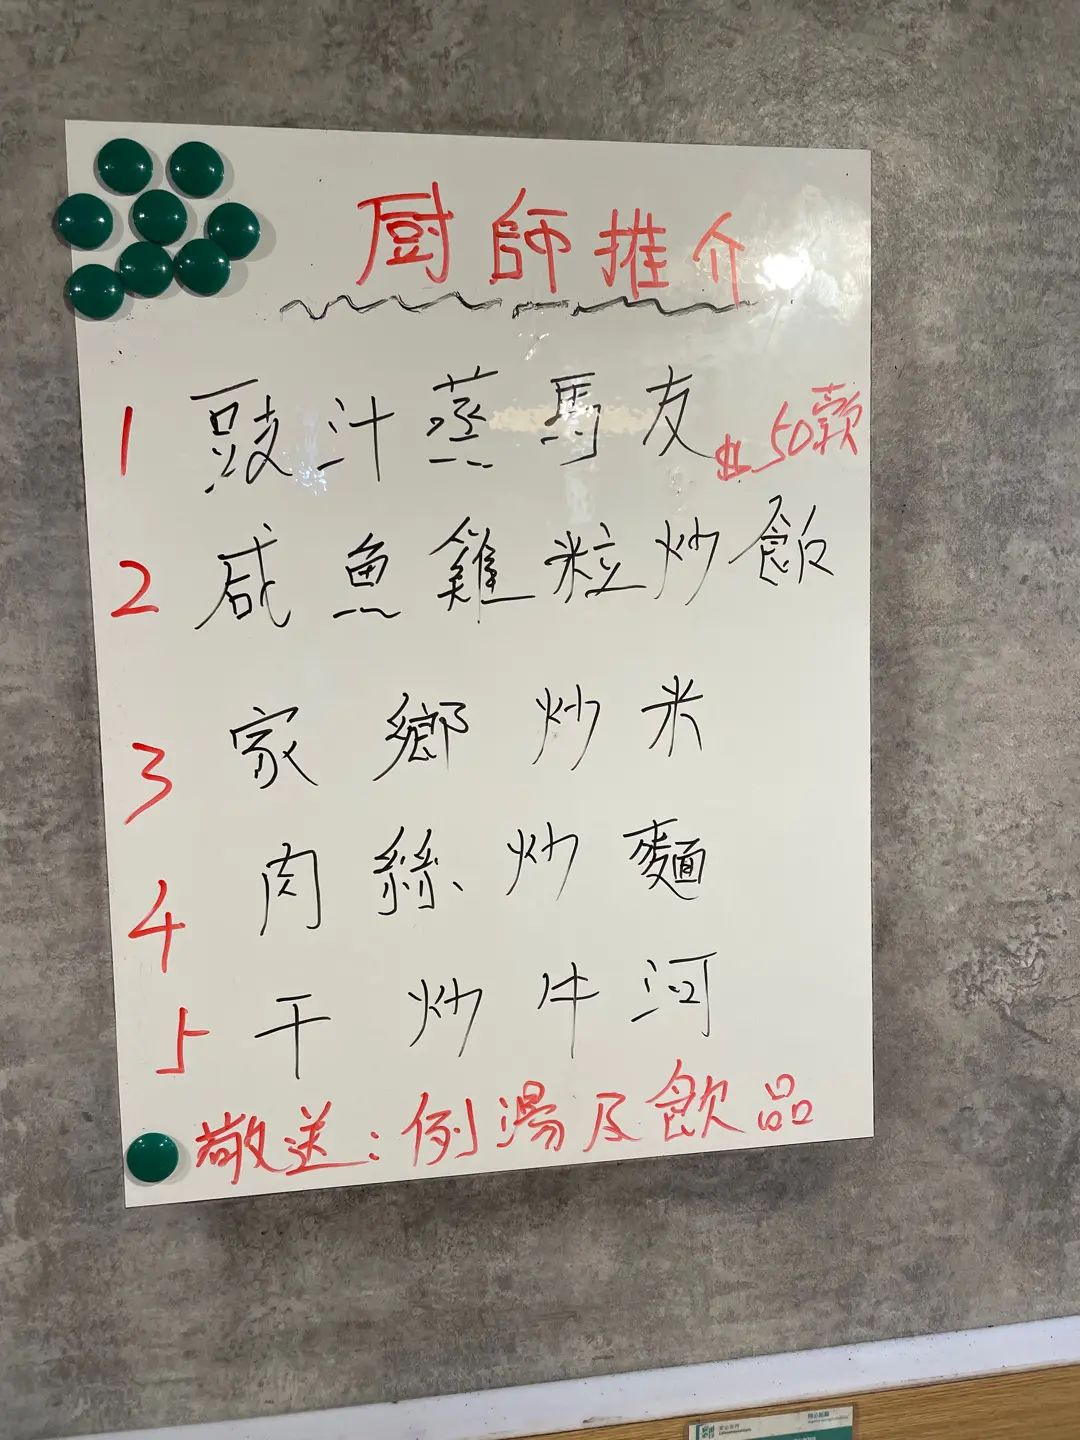 厨師推介
1 豉汁蒸馬友 $50款
2 咸魚雞粒炒飯
3 家鄉炒米
4 肉絲炒麵
5 干炒牛河
敬送：例湯及飲品